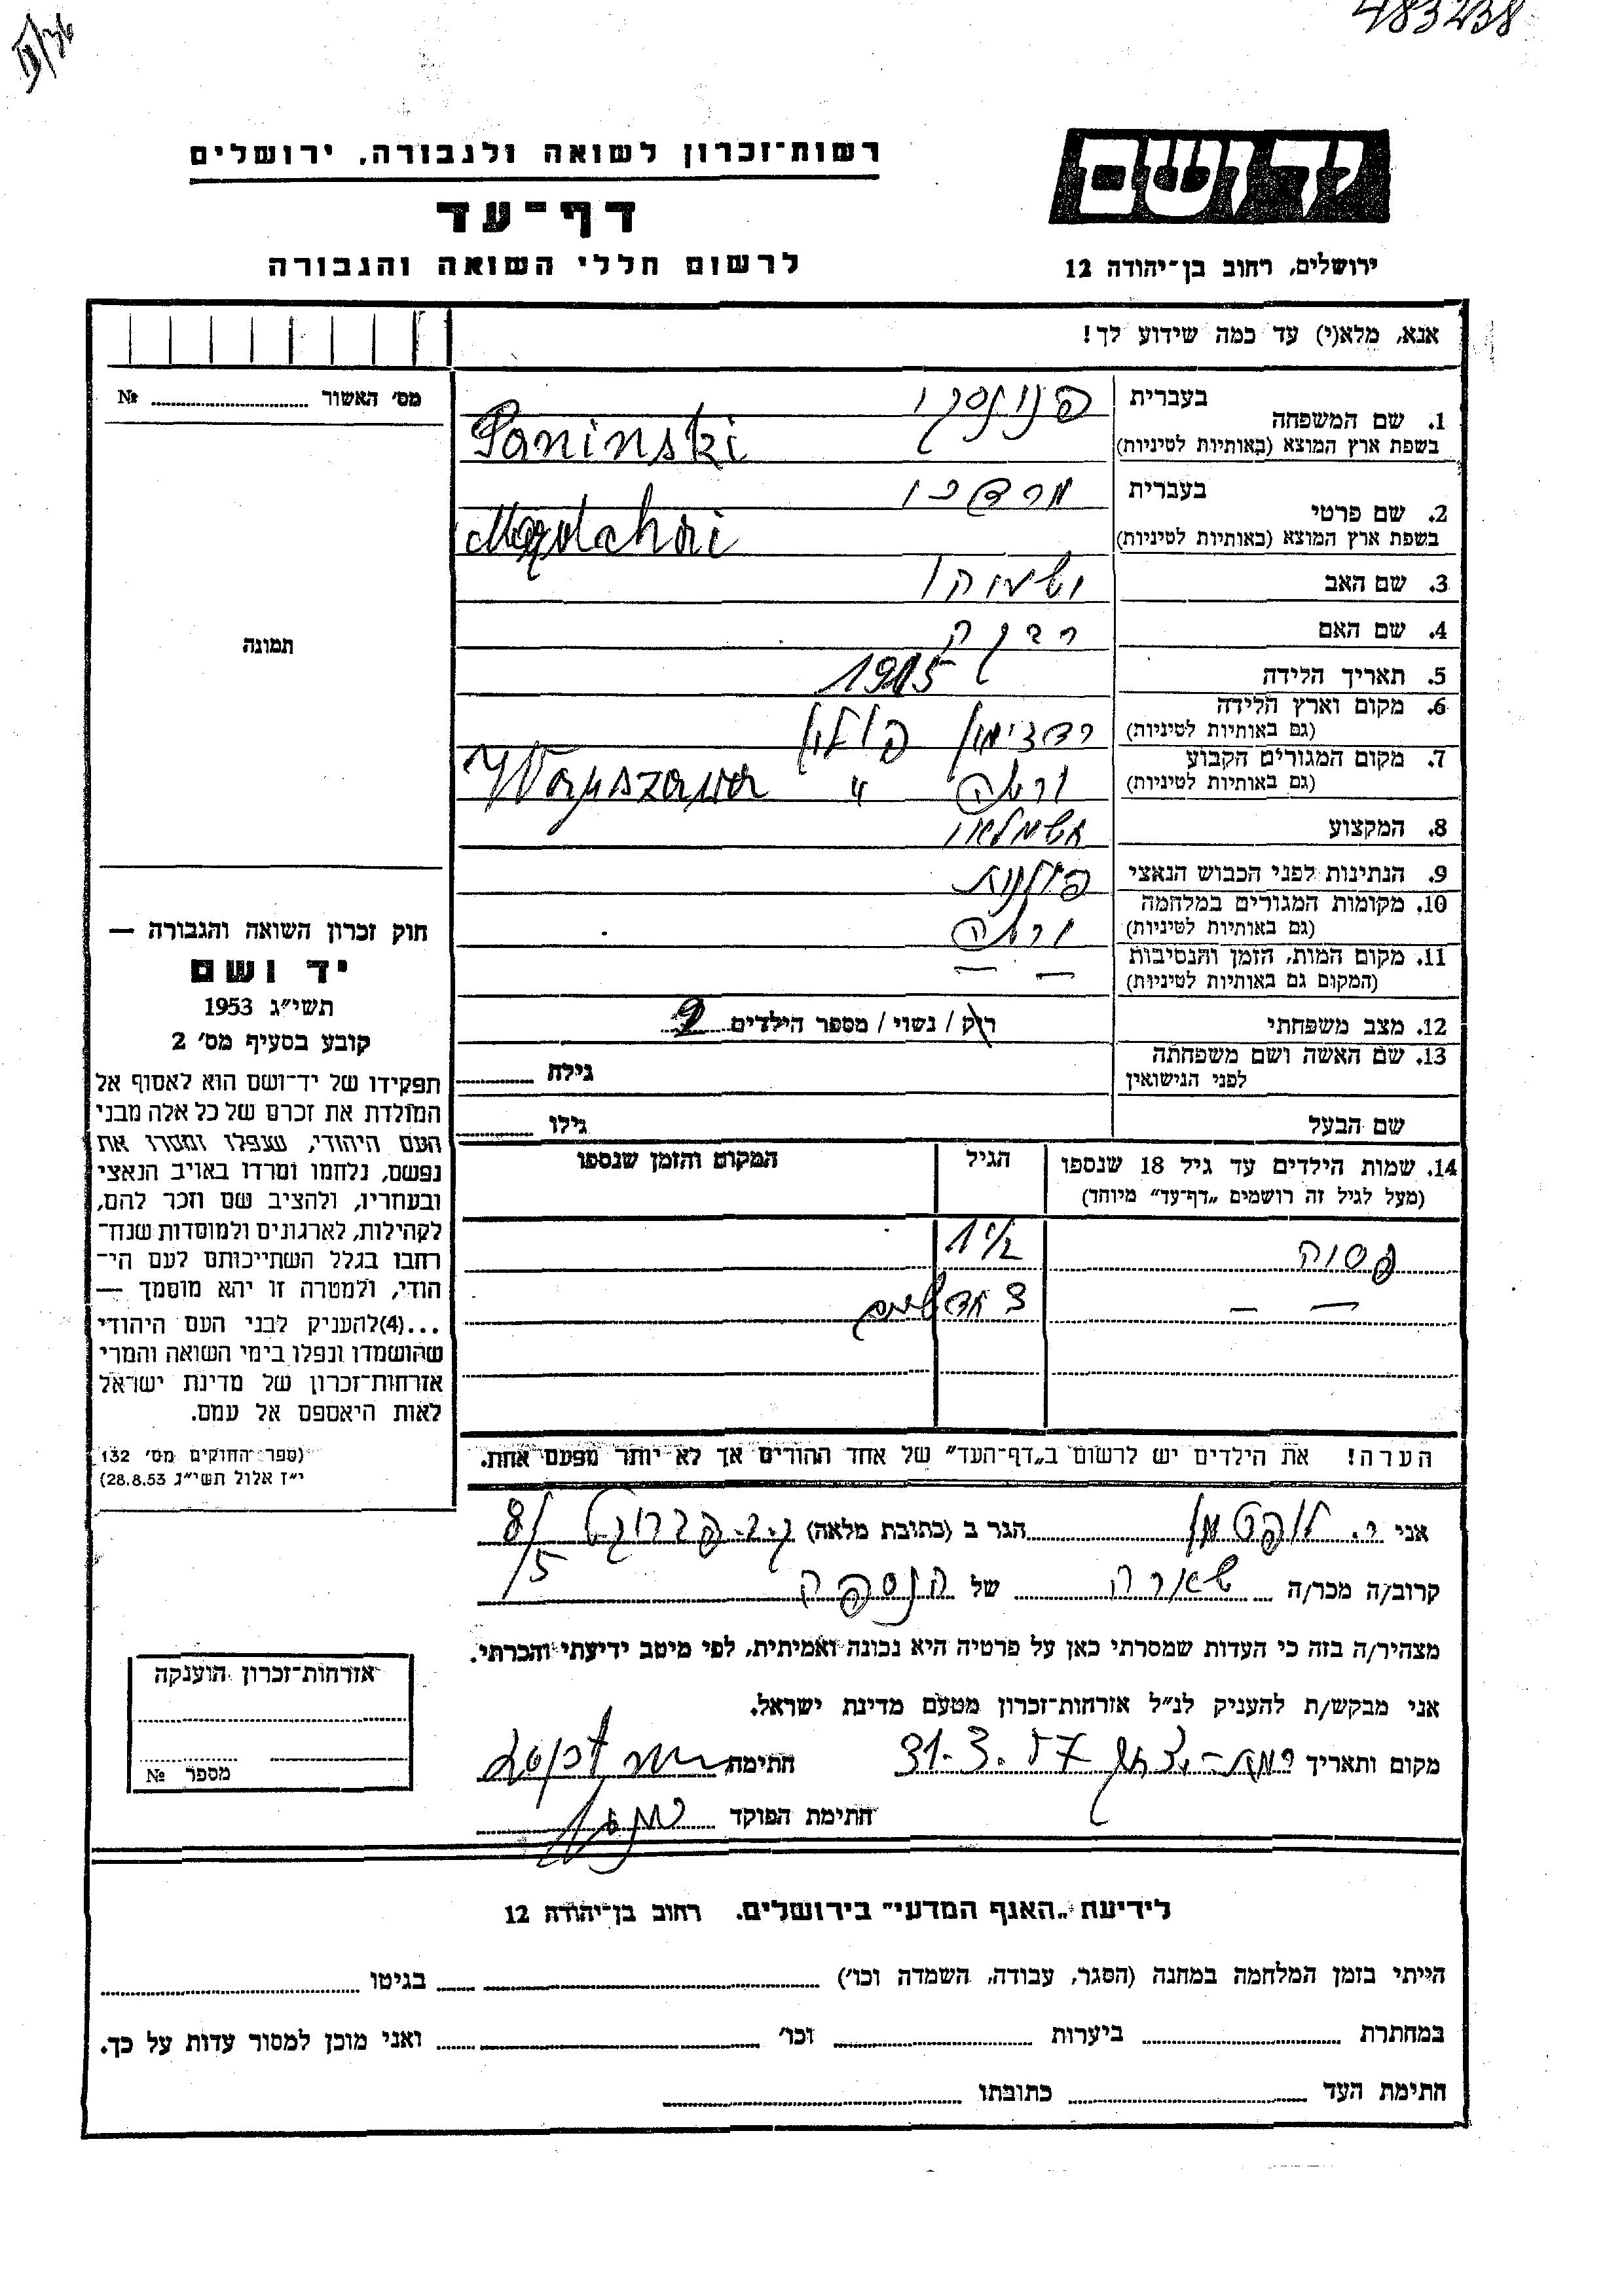 483238
רשות־זכרון לשואה ולגבורה, ירושלים
דף־עד
לרשום חללי השואה והגבורה
יד ושם
ירושלים, רחוב בן־יהודה 12
אנא, מלא(י) עד כמה שידוע לך!
מס׳ האשור № 
תמונה
1. שם המשפחה
בעברית פנינסקי
בשפת ארץ המוצא (באותיות לטיניות) Paninski
2. שם פרטי
בעברית מרדכי
בשפת ארץ המוצא (באותיות לטיניות)
3. שם האב
4. שם האם רבקה
5. תאריך הלידה 1915
6. מקום וארץ הלידה
(גם באותיות לטיניות) רדזימין פולין
7. מקום המגורים הקבוע
(גם באותיות לטיניות) ורשה " Warszawa
8. המקצוע חשמלאי
9. הנתינות לפני הכבוש הנאצי פולנית
10. מקומות המגורים במלחמה
(גם באותיות לטיניות) ורשה
11. מקום המות, הזמן והנסיבות
(המקום גם באותיות לטיניות) — —
12. מצב משפחתי רוק / נשוי / מספר הילדים 2
13. שם האשה ושם משפחתה
לפני הנישואין גילה
שם הבעל גילו
14. שמות הילדים עד גיל 18 שנספו הגיל המקום והזמן שנספו
(מעל לגיל זה רושמים „דף־עד" מיוחד)
1½
— — 3 חדשים
הערה! את הילדים יש לרשום ב„דף־העד" של אחד ההורים אך לא יותר מפעם אחת.
חוק זכרון השואה והגבורה —
יד ושם
תשי״ג 1953
קובע בסעיף מס׳ 2
תפקידו של יד־ושם הוא לאסוף אל
המולדת את זכרם של כל אלה מבני
העם היהודי, שנפלו ומסרו את
נפשם, נלחמו ומרדו באויב הנאצי
ובעוזריו, ולהציב שם וזכר להם,
לקהילות, לארגונים ולמוסדות שנח־
רחבו בגלל השתייכותם לעם הי־
הודי, ולמטרה זו יהא מוסמך —
...(4)להעניק לבני העם היהודי
שהושמדו ונפלו בימי השואה והמרי
אזרחות־זכרון של מדינת ישראל
לאות היאספם אל עמם.
(ספר החוקים מס׳ 132
י״ז אלול תשי״ג 28.8.53)
אני י. הגר ב (כתובת מלאה) 8/
5/
קרוב/ה מכר/ה שארה של הנספה
מצהיר/ה בזה כי העדות שמסרתי כאן על פרטיה היא נכונה ואמיתית, לפי מיטב ידיעתי והכרתי.
אני מבקש/ת להעניק לנ״ל אזרחות־זכרון מטעם מדינת ישראל.
מקום ותאריך רמת־יצחק 31.3.57 חתימה
חתימת הפוקד
אזרחות־זכרון הוענקה
מספר №
לידיעת „האגף המדעי" בירושלים. רחוב בן־יהודה 12
הייתי בזמן המלחמה במחנה (הסגר, עבודה, השמדה וכו׳) בגיטו
במחתרת ביערות וכו׳ ואני מוכן למסור עדות על כך.
חתימת העד כתובתו